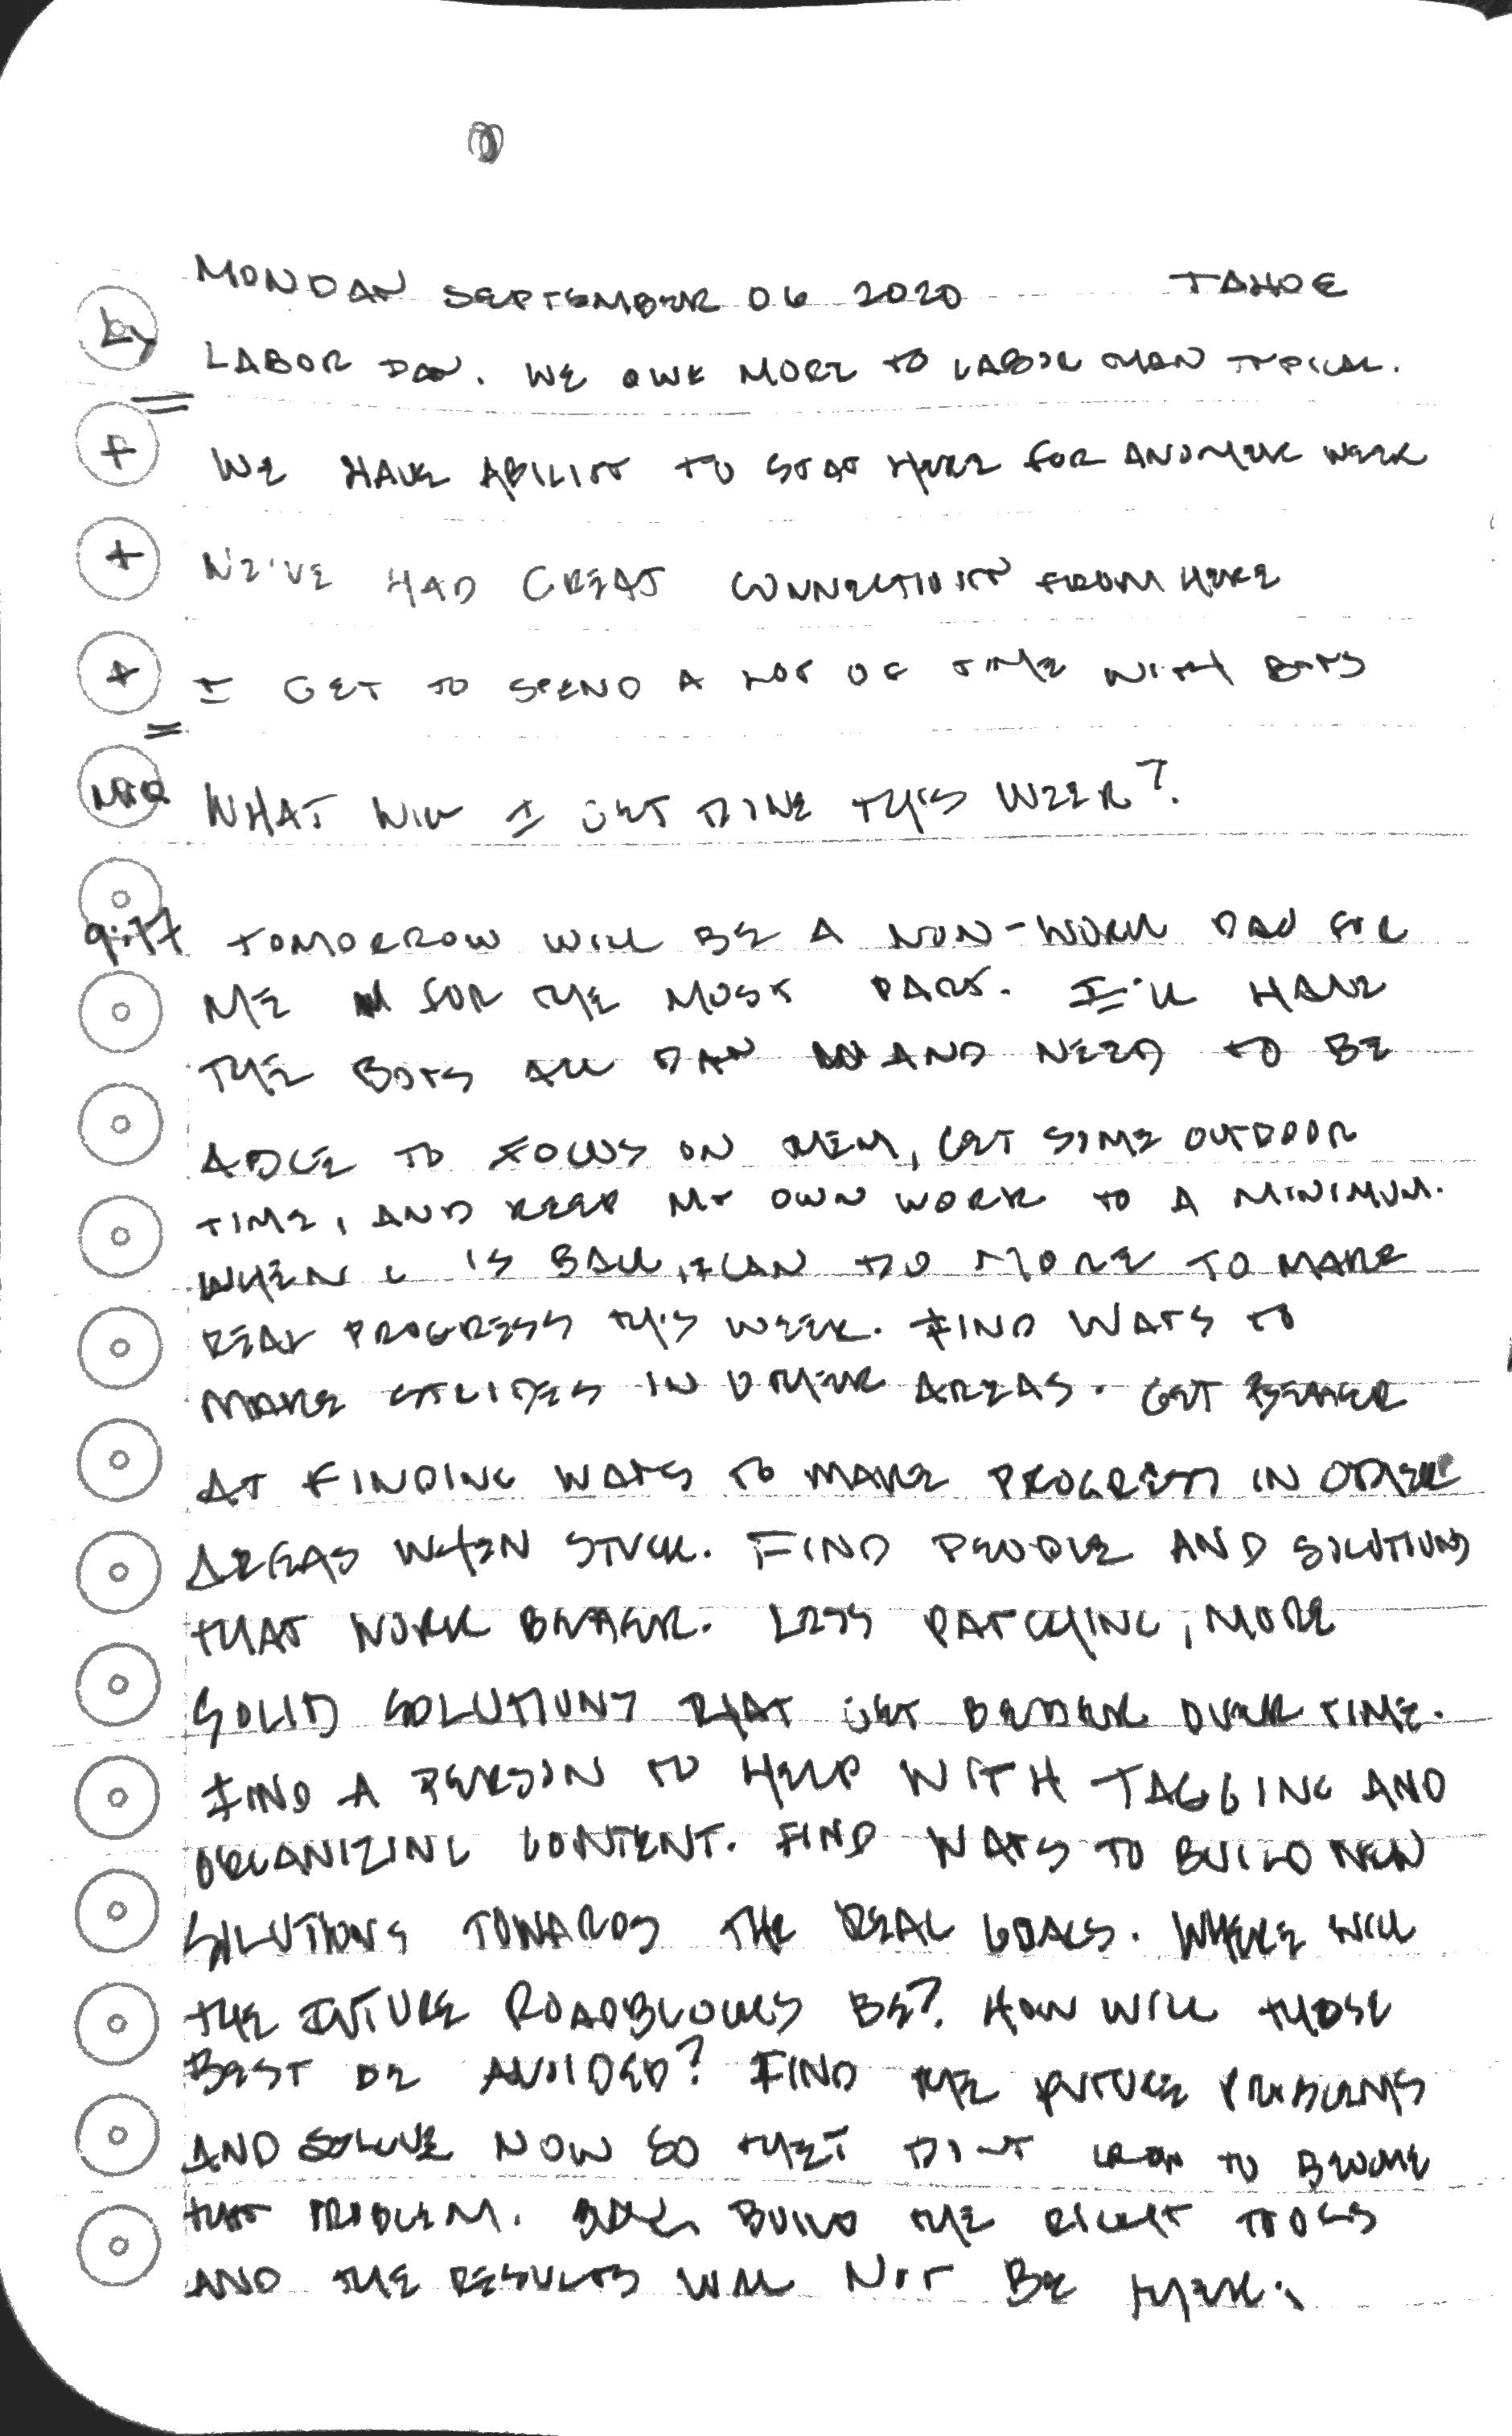 MONDAY SEPTEMBER 06 2020 TAHOE
LABOR DAY. WE OWE MORE TO LABOR THAN TYPICAL.
+ WE HAVE ABILITY TO STAY HERE FOR ANOTHER WEEK
+ WE'VE HAD GREAT CONNECTIVITY FROM HERE
+ I GET TO SPEND A LOT OF TIME WITH BOYS
WHAT WILL I GET DONE THIS WEEK?
9:77 TOMORROW WILL BE A NON-WORK DAY FOR
ME FOR THE MOST PART. I'LL HAVE
THE BOYS ALL DAY AND NEED TO BE
ABLE TO FOCUS ON THEM, GET SOME OUTDOOR
TIME, AND KEEP MY OWN WORK TO A MINIMUM.
WHEN L IS BACK, I CAN DO MORE TO MAKE
REAL PROGRESS THIS WEEK. FIND WAYS TO
MAKE STRIDES IN OTHER AREAS. GET BETTER
AT FINDING WAYS TO MAKE PROGRESS IN OTHER
AREAS WHEN STUCK. FIND PEOPLE AND SOLUTIONS
THAT WORK BETTER. LESS PATCHING, MORE
SOLID SOLUTIONS THAT GET BETTER OVER TIME.
FIND A PERSON TO HELP WITH TAGGING AND
ORGANIZING CONTENT. FIND WAYS TO BUILD NEW
SOLUTIONS TOWARDS THE REAL GOALS. WHERE WILL
THE FUTURE ROADBLOCKS BE? HOW WILL THOSE
BEST BE AVOIDED? FIND THE FUTURE PROBLEMS
AND SOLVE NOW SO THEY DON'T TO BECOME
THAT PROBLEM. BUILD THE RIGHT TOOLS
AND THE RESULTS WILL NOT BE